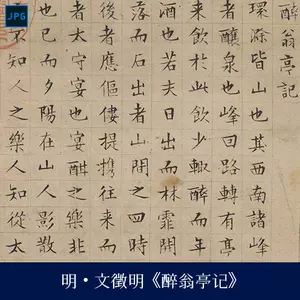 JPG
醉翁亭記
環滁皆山也其西南諸峰
者釀泉也峰回路轉有亭
來飲於此飲少輒醉而年
酒也若夫日出而林霏開
落而石出者山間之四時
者後應傴僂提携往來
者太守宴也酣之樂非
也已而夕陽在山人影散
不知人之樂人知從太
明·文徵明《醉翁亭记》